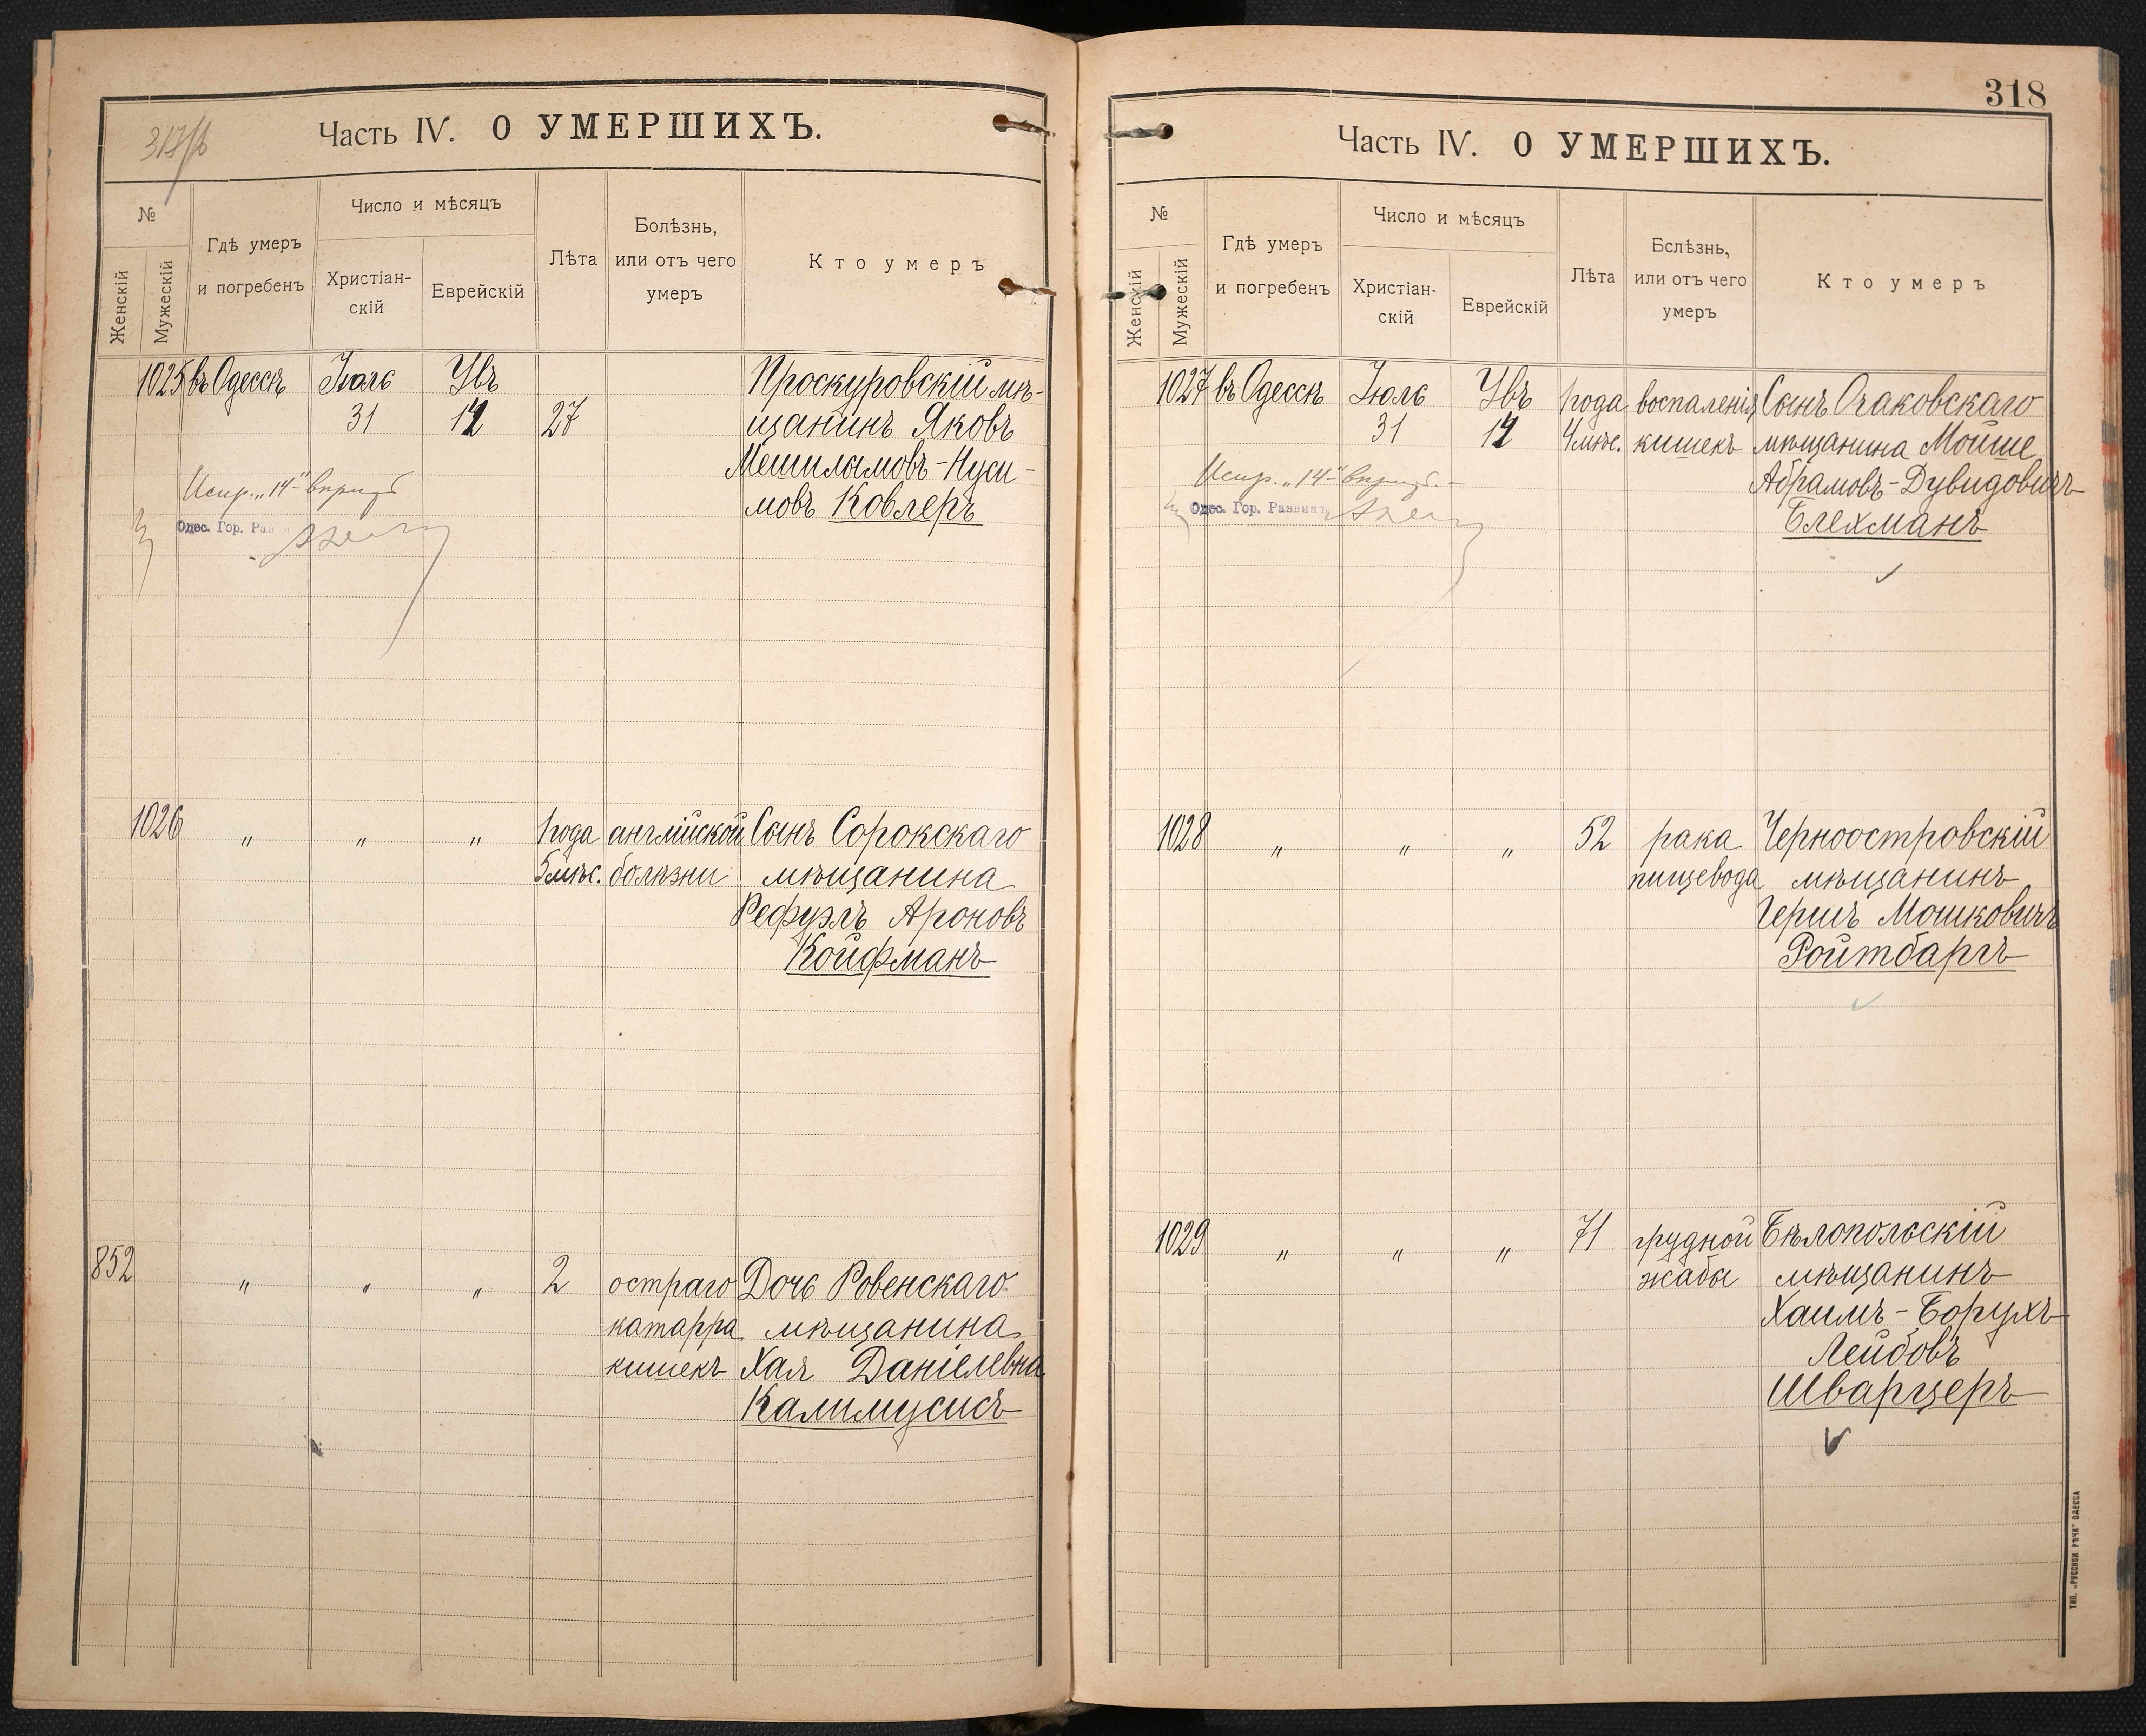 Часть IV. О УМЕРШИХЪ.
№
Женскій
Мужескій
Гдѣ умеръ
и погребенъ
Число и мѣсяцъ
Христіан-
скій
Еврейскій
Лѣта
Болѣзнь,
или отъ чего
умеръ
Кто умеръ
1025 въ Одессѣ Іюль Увъ Проскуровскій мѣ-
31 14 27 щанинъ Яковъ
Мешилымовъ-Нуси-
мовъ Ковлеръ
Испр. „14“
Одес. Гор. Рав
1026 " " " 1 года англійской Сынъ Сорокскаго
5 мѣс. болѣзни мѣщанина
Рефуэлъ Ароновъ
Койфманъ
852 " " " 2 остраго Дочь Ровенскаго
катарра мѣщанина
кишекъ Хая Даніелевна
Калимусисъ
318
Часть IV. О УМЕРШИХЪ.
№
Женскій
Мужескій
Гдѣ умеръ
и погребенъ
Число и мѣсяцъ
Христіан-
скій
Еврейскій
Лѣта
Бслѣзнь,
или отъ чего
умеръ
Кто умеръ
1027 въ Одессѣ Іюль Увъ 1 года воспаленія Сынъ Очаковскаго
31 14 4 мѣс. кишекъ мѣщанина Мойше
Абрамовъ-Дувидовичъ
Блехманъ
Испр. „14“
Одес. Гор. Раввинъ
1028 " " " 52 рака Черноостровскій
пищевода мѣщанинъ
Гершъ Мошковичъ
Ройтбаргъ
1029 " " " 71 грудной Бѣлопольскій
жабы мѣщанинъ
Хаимъ-Борухъ
Лейбовъ
Шварцеръ
ТИП. „РУССКОЙ РѢЧИ“ ОДЕССА